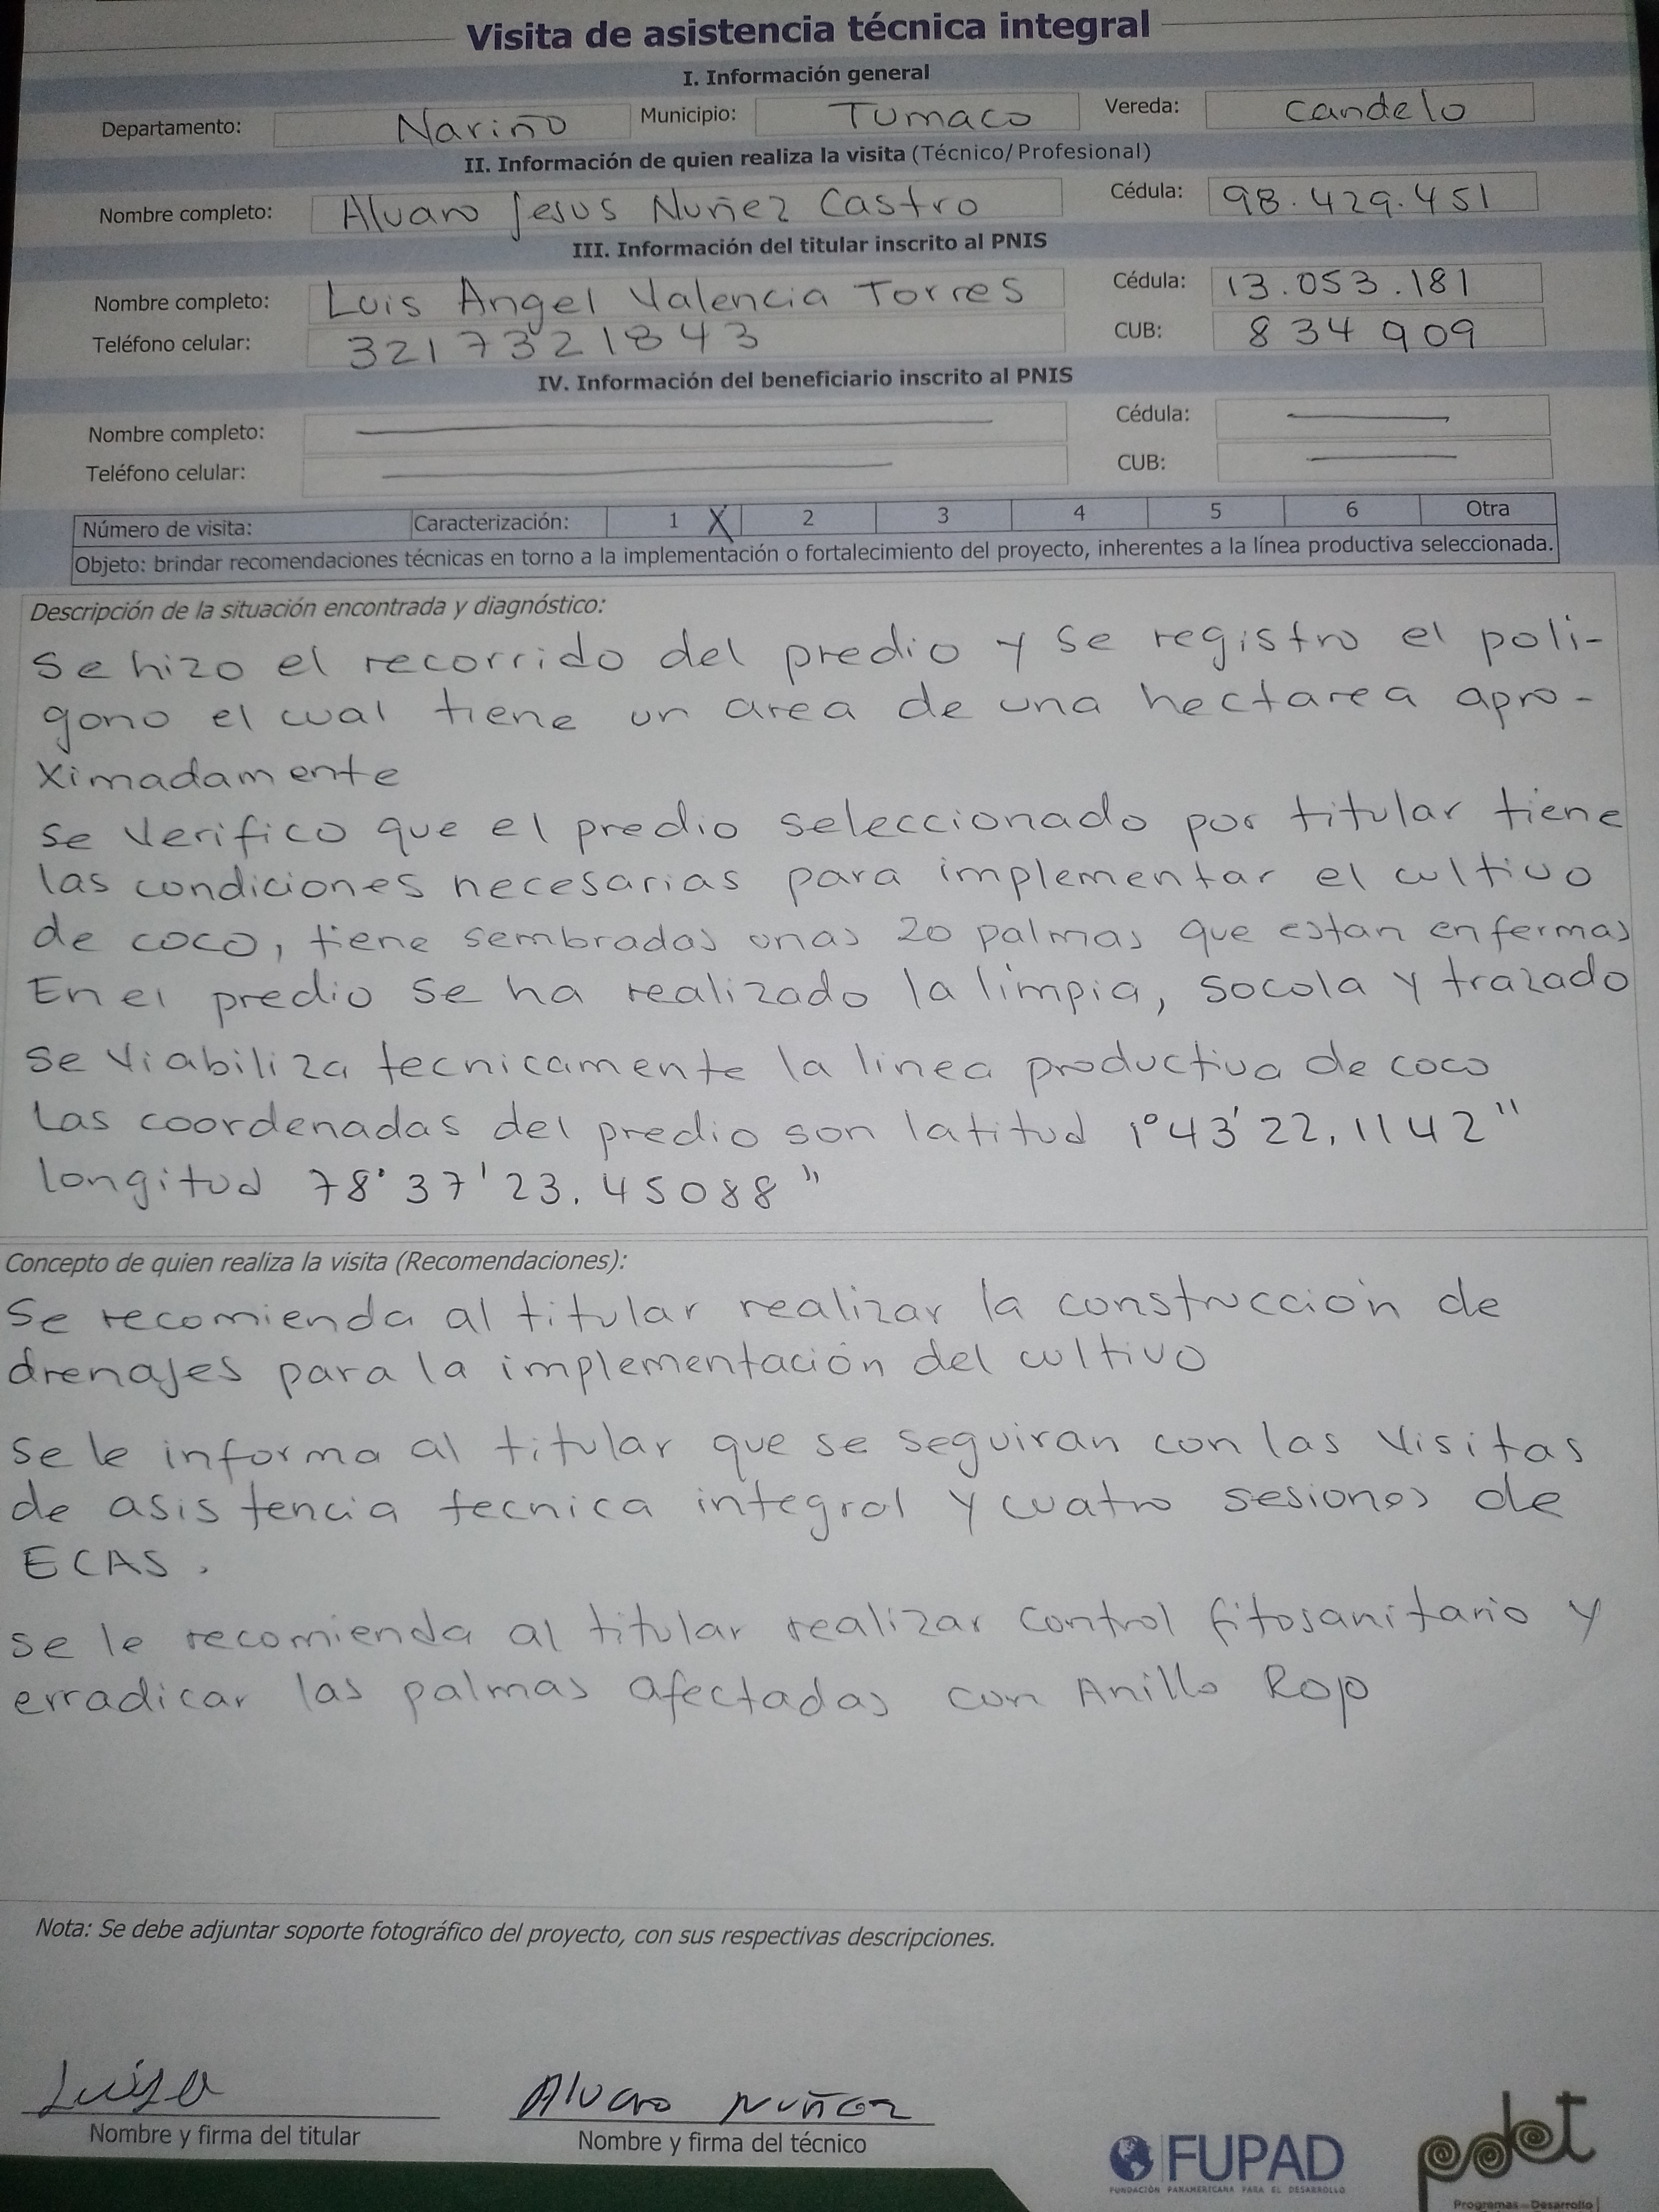 Visita de asistencia técnica integral
I. Información general
Departamento: Nariño Municipio: Tumaco Vereda: Candelo
II. Información de quien realiza la visita (Técnico/Profesional)
Nombre completo: Alvaro Jesus Nuñez Castro Cédula: 98.429.451
III. Información del titular inscrito al PNIS
Nombre completo: Luis Angel Valencia Torres Cédula: 13.053.181
Teléfono celular: 3217321843 CUB: 834909
IV. Información del beneficiario inscrito al PNIS
Nombre completo: Cédula:
Teléfono celular: CUB:
Número de visita: Caracterización: 1 X 2 3 4 5 6 Otra
Objeto: brindar recomendaciones técnicas en torno a la implementación o fortalecimiento del proyecto, inherentes a la línea productiva seleccionada.
Descripción de la situación encontrada y diagnóstico:
Se hizo el recorrido del predio y se registro el poli-
gono el cual tiene un area de una hectarea apro-
ximadamente
se verifico que el predio seleccionado por titular tiene
las condiciones necesarias para implementar el cultivo
de coco, tiene sembradas unas 20 palmas que estan enfermas
En el predio se ha realizado la limpia, socola y trazado
se viabiliza tecnicamente la linea productiva de coco
Las coordenadas del predio son latitud 1°43'22,1142"
longitud 78°37'23.45088"
Concepto de quien realiza la visita (Recomendaciones):
Se recomienda al titular realizar la construcción de
drenajes para la implementación del cultivo
se le informa al titular que se seguiran con las visitas
de asistencia tecnica integral y cuatro sesiones de
ECAS.
se le recomienda al titular realizar control fitosanitario y
erradicar las palmas afectadas con Anillo Rojo
Nota: Se debe adjuntar soporte fotográfico del proyecto, con sus respectivas descripciones.
Alvaro Nuñez
Nombre y firma del titular Nombre y firma del técnico
FUPAD
FUNDACIÓN PANAMERICANA PARA EL DESARROLLO
pdet
Programas de Desarrollo